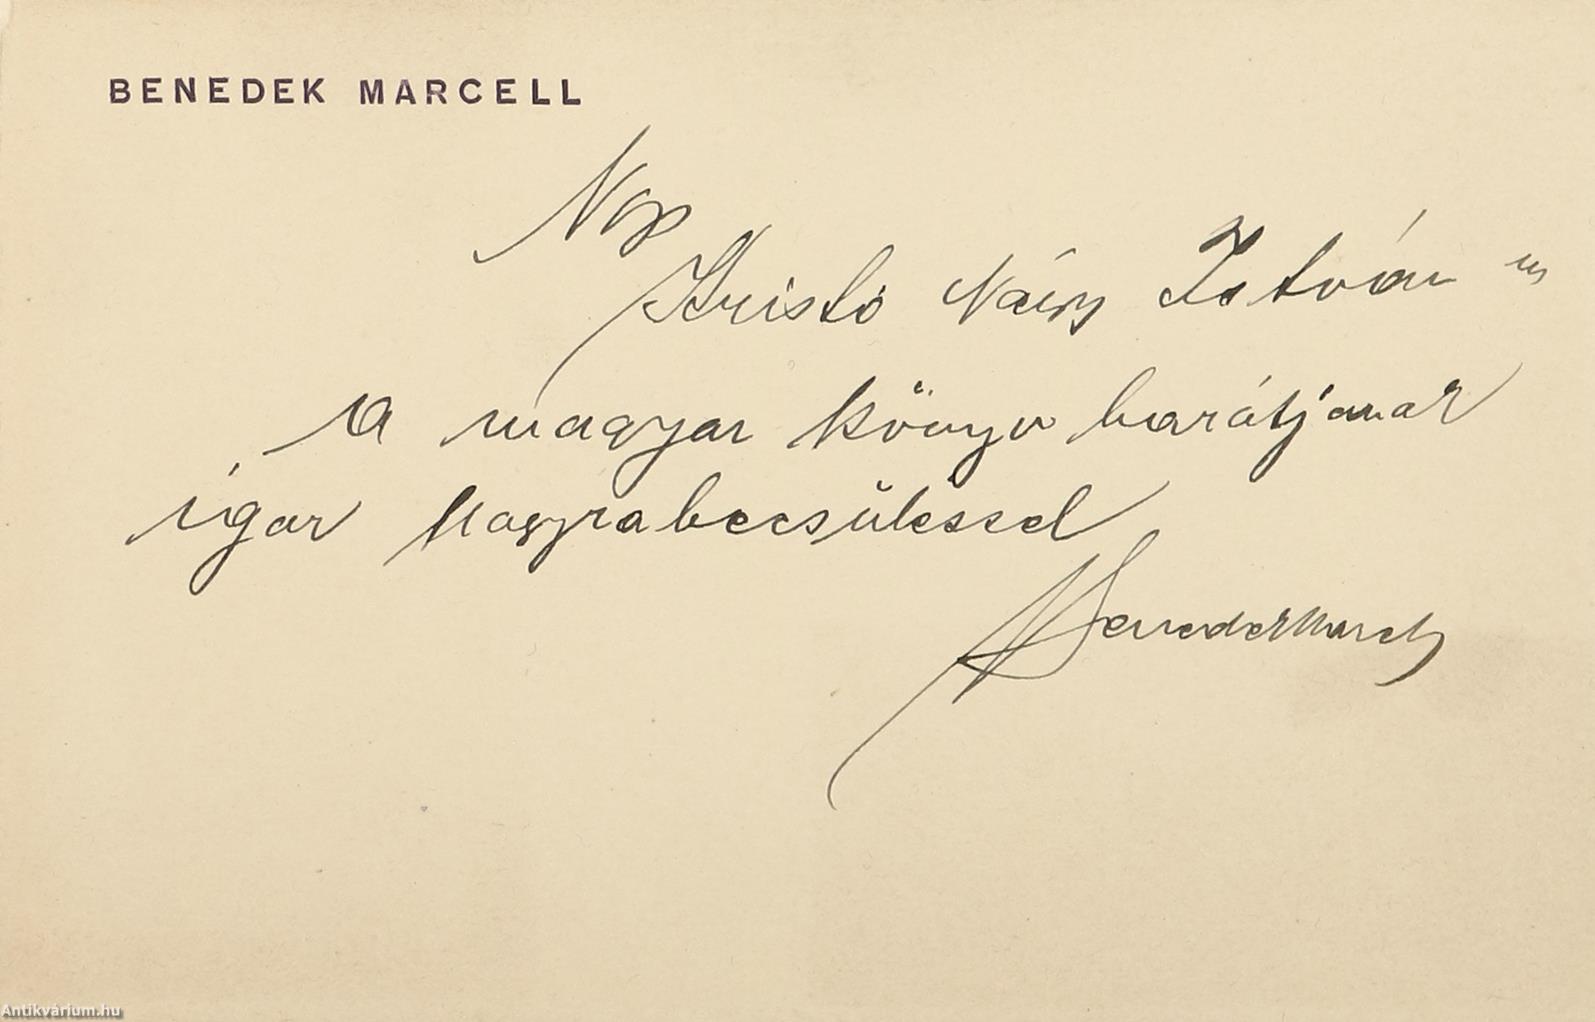 BENEDEK MARCELL
Nagys
Kristó Nagy István úr
A magyar könyv barátjának
igaz nagyrabecsüléssel
Benedek Marcell
Antikvárium.hu